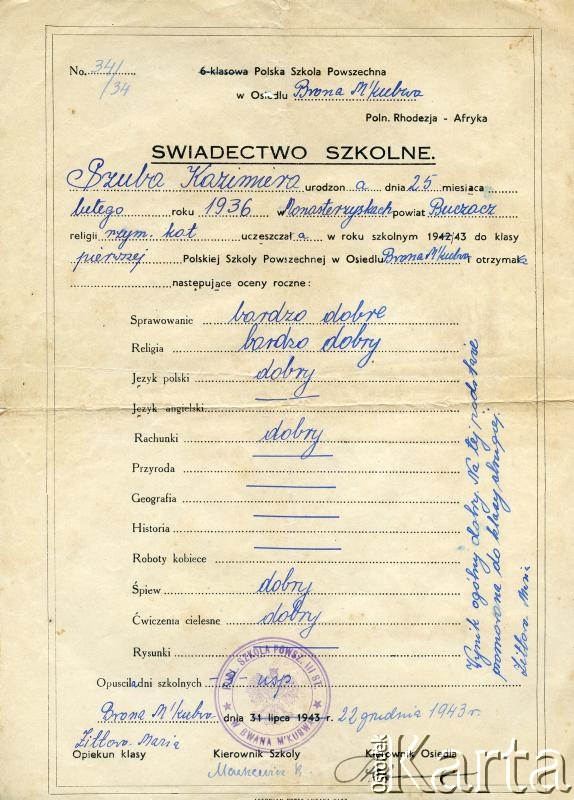 No. 341/34
6-klasowa Polska Szkola Powszechna
w Osiedlu Brona M'kubwa
Poln. Rhodezja - Afryka
SWIADECTWO SZKOLNE.
Szuba Kazimiera urodzon a dnia 25 miesiąca
lutego roku 1936 w Monasterzyskach powiat Buczacz
religii rzym. kat uczeszczał a w roku szkolnym 1942/43 do klasy
pierwszej Polskiej Szkoly Powszechnej w Osiedlu Brona M'kubwa i otrzymała
następujące oceny roczne:
Sprawowanie bardzo dobre
Religia bardzo dobry
Język polski dobry
Język angielski —
Rachunki dobry
Przyroda —
Geografia —
Historia —
Roboty kobiece —
Śpiew dobry
Ćwiczenia cielesne dobry
Rysunki
Opuscila dni szkolnych - 3 - usp
Brona M'kubwa dnia 31 lipca 1943 r. 22 grudnia 1943 r.
Zittova Maria
Opiekun klasy Kierownik Szkoly Kierownik Osiedla
Wynik ogólny dobry. Na tej podstawie
promowana do klasy drugiej.
Zittova Maria
SZKOŁA POWSZ. III ST.
W BWANA M'KUBWA
ośrodek Karta